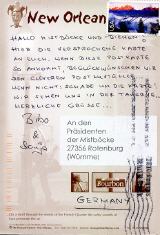 New Orleans
HALLO MISTBÖCKE UND BIENEN!
HIER DIE VERSPROCHENE KARTE
AN EUCH. WENN DIESE POSTKARTE
SO ANKOMMT, BEGLÜCKWÜNSCHEN WIR
DEN CLEVEREN POSTMENSCHEN
WENN NICHT: SCHADE UM DIE KARTE
WIR SEHEN UNS IN DER TAVERNE.
HERZLICHE GRÜSSE...
Bibo
&
An den
Präsidenten
der Mistböcke
27356 Rotenburg
(Wümme)
Bourbon
GERMANY